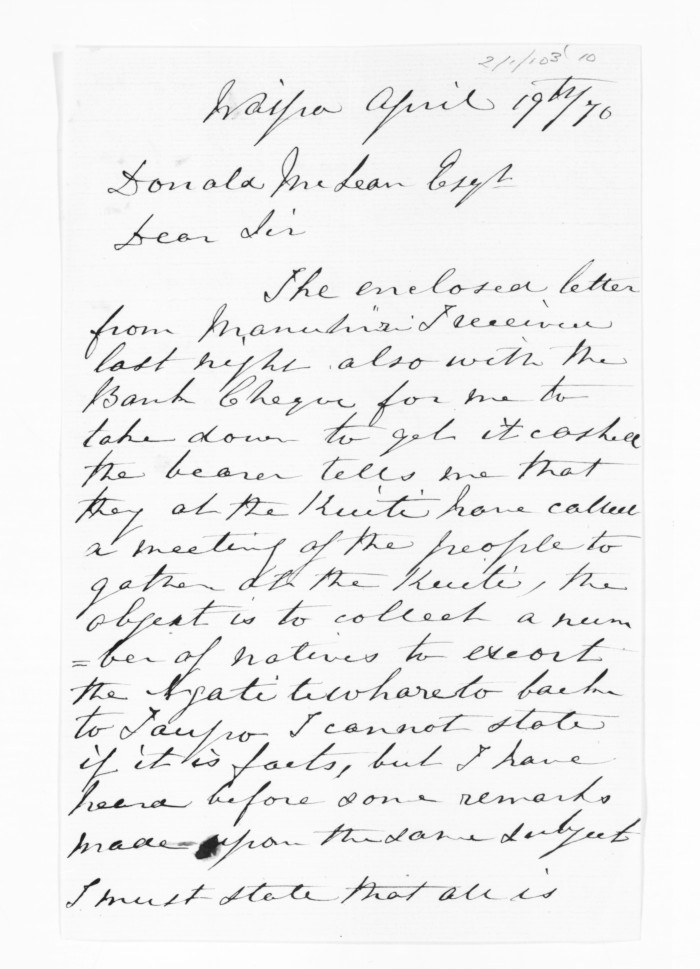 2/1/103 10
Waipa April 19th/70
Donald McLean Esqr
Dear Sir
The enclosed letter
from Manuhiri I received
last night also with the
Bank Cheque for me to
take down to get it cashed
the bearer tells me that
they at the Kuiti have called
a meeting of the people to
gather at the Kuiti, the
object is to collect a num
=ber of natives to escort
the Ngati tewhareto back
to Taupo I cannot state
if it is facts, but I have
heard before some remarks
made upon the same subject
I must state that all is